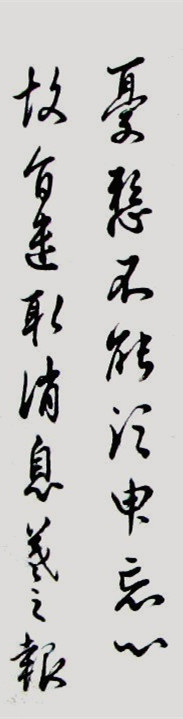 憂懸不能須臾忘心
故旨遣取消息羲之報